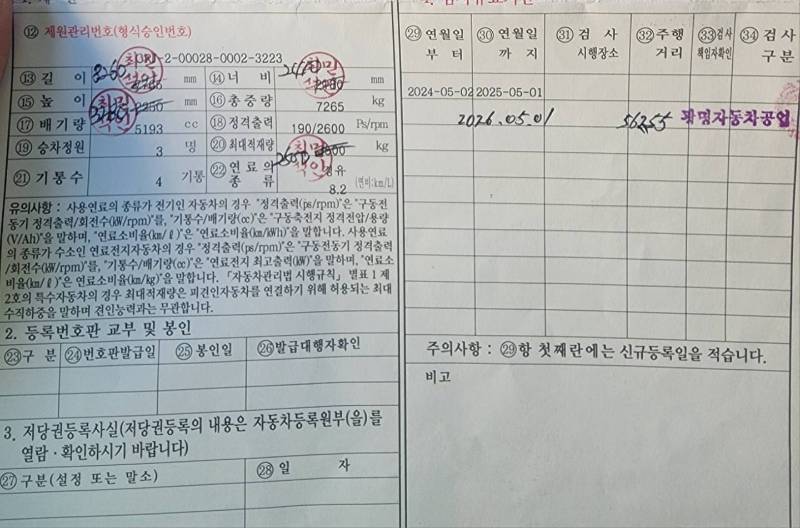 ⑫ 제원관리번호(형식승인번호)
2-00028-0002-3223
⑬ 길 이 mm ⑭ 너 비 mm
⑮ 높 이 2250 mm ⑯ 총 중 량 7265 kg
⑰ 배 기 량 5193 cc ⑱ 정격출력 190/2600 Ps/rpm
⑲ 승차정원 3 명 ⑳ 최대적재량 kg
㉑ 기 통 수 4 기통 ㉒ 연 료 의 종 류 경유 8.2 (연비:km/L)
유의사항 : 사용연료의 종류가 전기인 자동차의 경우 "정격출력(ps/rpm)"은 "구동전
동기 정격출력/회전수(kW/rpm)"를, "기통수/배기량(cc)"은 "구동축전지 정격전압/용량
(V/Ah)"을 말하며, "연료소비율(km/ℓ)"은 "연료소비율(km/kWh)"을 말합니다. 사용연료
의 종류가 수소인 연료전지자동차의 경우 "정격출력(ps/rpm)"은 "구동전동기 정격출력
/회전수(kW/rpm)"를, "기통수/배기량(cc)"은 "연료전지 최고출력(kW)"을 말하며, "연료소
비율(km/ℓ)"은 연료소비율(km/kg)"을 말합니다. 「자동차관리법 시행규칙」 별표 1 제
2호의 특수자동차의 경우 최대적재량은 피견인자동차를 연결하기 위해 허용되는 최대
수직하중을 말하며 견인능력과는 무관합니다.
2. 등록번호판 교부 및 봉인
㉓ 구 분 ㉔ 번호판발급일 ㉕ 봉인일 ㉖ 발급대행자확인
3. 저당권등록사실(저당권등록의 내용은 자동차등록원부(을)를
열람 · 확인하시기 바랍니다)
㉗ 구분(설정 또는 말소) ㉘ 일 자
㉙ 연월일 부 터 ㉚ 연월일 까 지 ㉛ 검 사 시행장소 ㉜ 주행 거리 ㉝ 검사 책임자확인 ㉞ 검 사 구 분
2024-05-02 2025-05-01
2026.05.01 56255 광명자동차공업
주의사항 : ㉙항 첫째란에는 신규등록일을 적습니다.
비고